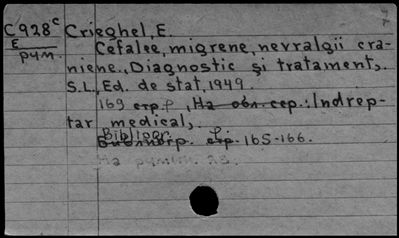 C928c Crieghel, E.
E
рум. Cefalee, migrene, nevralgii cra-
niene., Diagnostic și tratament,.
S.L., Ed. de stat, 1949.
169 стр. p, На обл. сер.: Indrep-
tar medical,.
Bibliogr. p.
Библиогр. стр. 165-166.
На румын. яз.